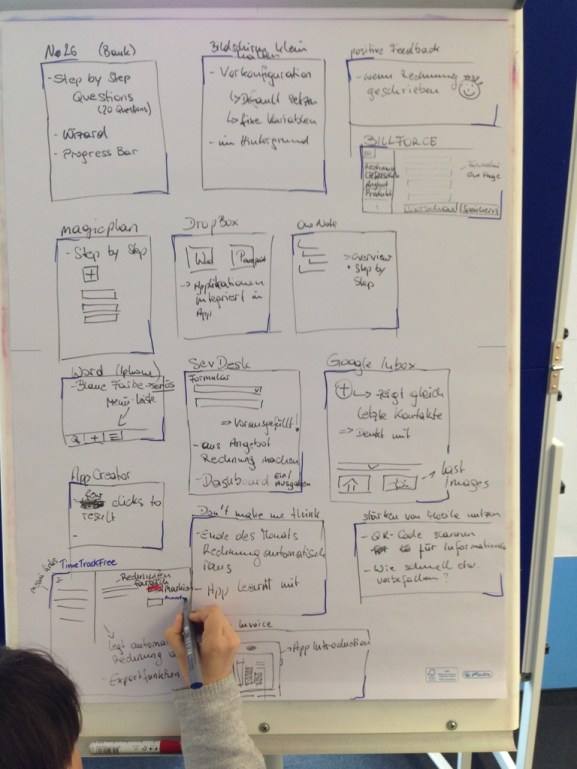 No26 (Bank)
- Step by Step
Questions
(20 Questions)
- Wizard
- Progress Bar
Bildschirm klein
halten
- Vorkonfiguration
↳ Default setzen
↳ fixe Variablen
- im Hintergrund
positive Feedback
- wenn Rechnung
geschrieben
BILLFORCE
Rechnung
Produkte
magicplan
- Step by Step
+
DropBox
Word
→ Applikationen
integriert in
App
One Note
→ overview
• Step by
Step
Word (Iphone)
- Blaue Farbe → seriös
Menü-Leiste
+
SevDesk
Formular
⇒ Vorausgefüllt!
- aus Angebot
Rechnung machen
- Dashboard Ein/
Ausgaben
Google Inbox
+ ↳ zeigt gleich
letzte Kontakte
⇒ Denkt mit
→ Last
Images
App Creator
clicks to
result
-
Don't make me think
- Ende des Monats
Rechnung automatisch
raus
- App lernt mit
stärken von Mobile nutzen
- QR-Code scannen
für Informationen
- Wie schnell
TimeTrackFree
- Rechnungen
legt autom
Rechnung
- Exportfunktion
Invoice
→ App Introduction